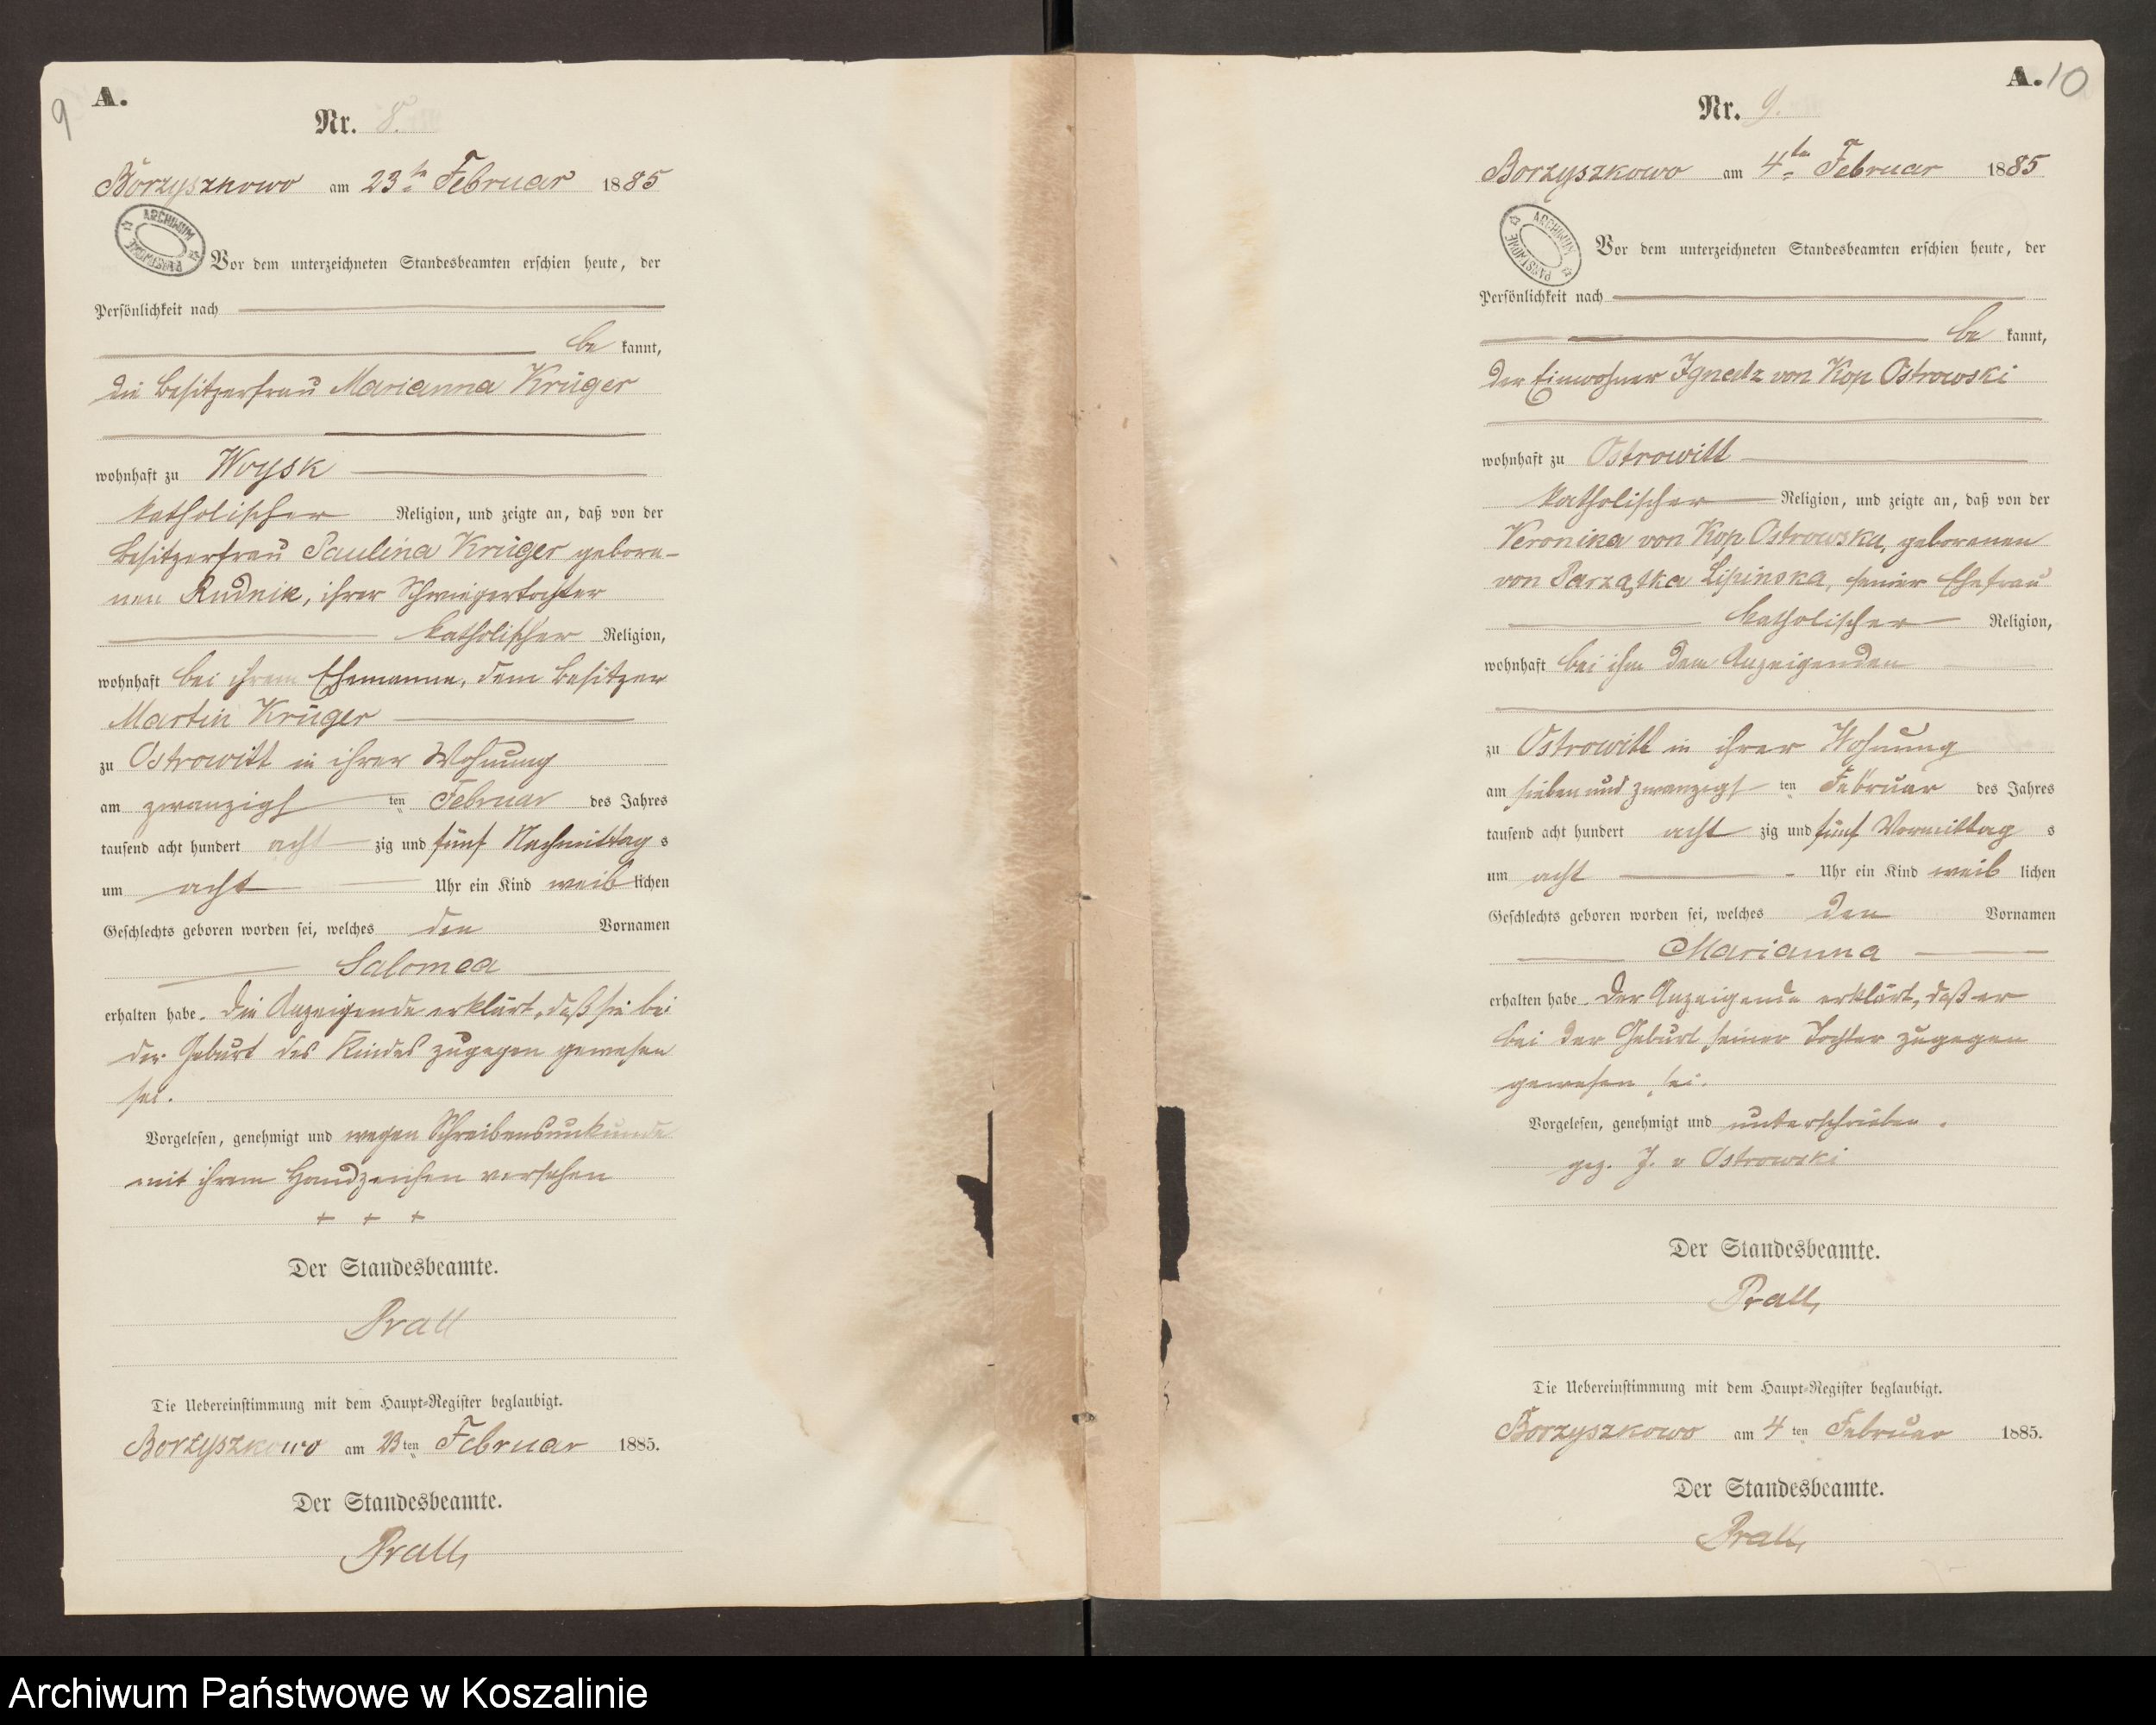 9
A.
Nr. 8.
Borzyszkowo am 23ten Februar 1885
ARCHIWUM PAŃSTWOWE
Vor dem unterzeichneten Standesbeamten erschien heute, der
Persönlichkeit nach
be kannt,
die Besitzerfrau Marianna Krüger
wohnhaft zu Woysk
katholischer Religion, und zeigte an, daß von der
Besitzerfrau Paulina Krüger gebore-
nen Rudnik, ihrer Schwiegertochter
katholischer Religion,
wohnhaft bei ihrem Ehemanne, dem Besitzer
Martin Krüger
zu Ostrowitt in ihrer Wohnung
am zwanzigst ten Februar des Jahres
tausend acht hundert acht zig und fünf Nachmittag s
um acht Uhr ein Kind weib lichen
Geschlechts geboren worden sei, welches den Vornamen
Salomea
erhalten habe. Die Anzeigende erklärt, daß sie bei
der Geburt des Kindes zugegen gewesen
sei.
Vorgelesen, genehmigt und wegen Schreibensunkunde
mit ihrem Handzeichen versehen
+ + +
Der Standesbeamte.
Prall
Die Uebereinstimmung mit dem Haupt-Register beglaubigt.
Borzyszkowo am 23 ten Februar 1885.
Der Standesbeamte.
Prall
A. 10
Nr. 9.
Borzyszkowo am 4ten Februar 1885
ARCHIWUM PAŃSTWOWE
Vor dem unterzeichneten Standesbeamten erschien heute, der
Persönlichkeit nach
be kannt,
der Einwohner Ignatz von Kop Ostrowski
wohnhaft zu Ostrowitt
katholischer Religion, und zeigte an, daß von der
Veronika von Kop Ostrowska, geborenen
von Parzątka Lipinska, seiner Ehefrau
katholischer Religion,
wohnhaft bei ihm dem Anzeigenden
zu Ostrowitt in ihrer Wohnung
am sieben und zwanzigst ten Februar des Jahres
tausend acht hundert acht zig und fünf Vormittag s
um acht Uhr ein Kind weib lichen
Geschlechts geboren worden sei, welches den Vornamen
Marianna
erhalten habe. Der Anzeigende erklärt, daß er
bei der Geburt seiner Tochter zugegen
gewesen sei.
Vorgelesen, genehmigt und unterschrieben.
gez. J. v Ostrowski
Der Standesbeamte.
Prall
Die Uebereinstimmung mit dem Haupt-Register beglaubigt.
Borzyszkowo am 4 ten Februar 1885.
Der Standesbeamte.
Prall
Archiwum Państwowe w Koszalinie